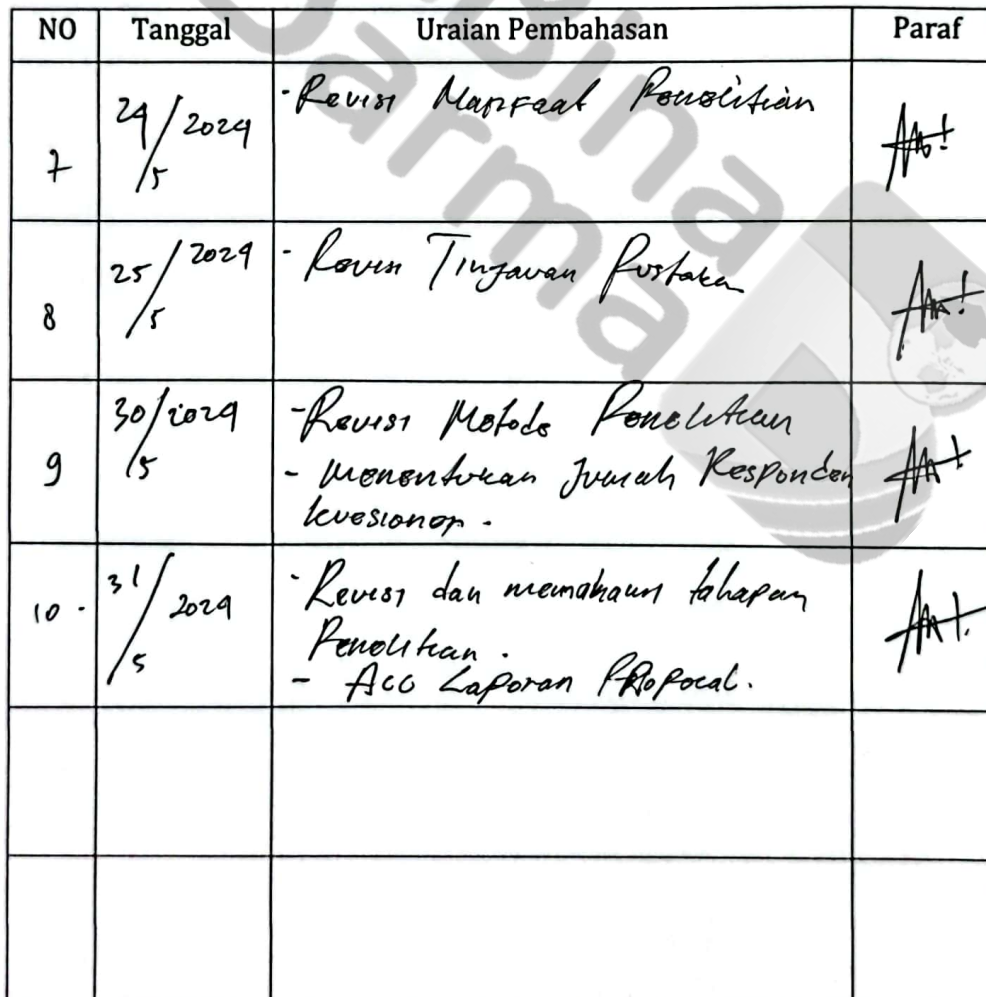 NO Tanggal Uraian Pembahasan Paraf
7 24/5 2024 - Revisi Manfaat Penelitian
8 25/5 2024 - Revisi Tinjauan Pustaka
9 30/5 2024 - Revisi Metode Penelitian
- Menentukan Jumlah Responden
kuesioner.
10. 31/5 2024 - Revisi dan memahami tahapan
Penelitian.
- Acc Laporan Proposal.
Bina
Darma